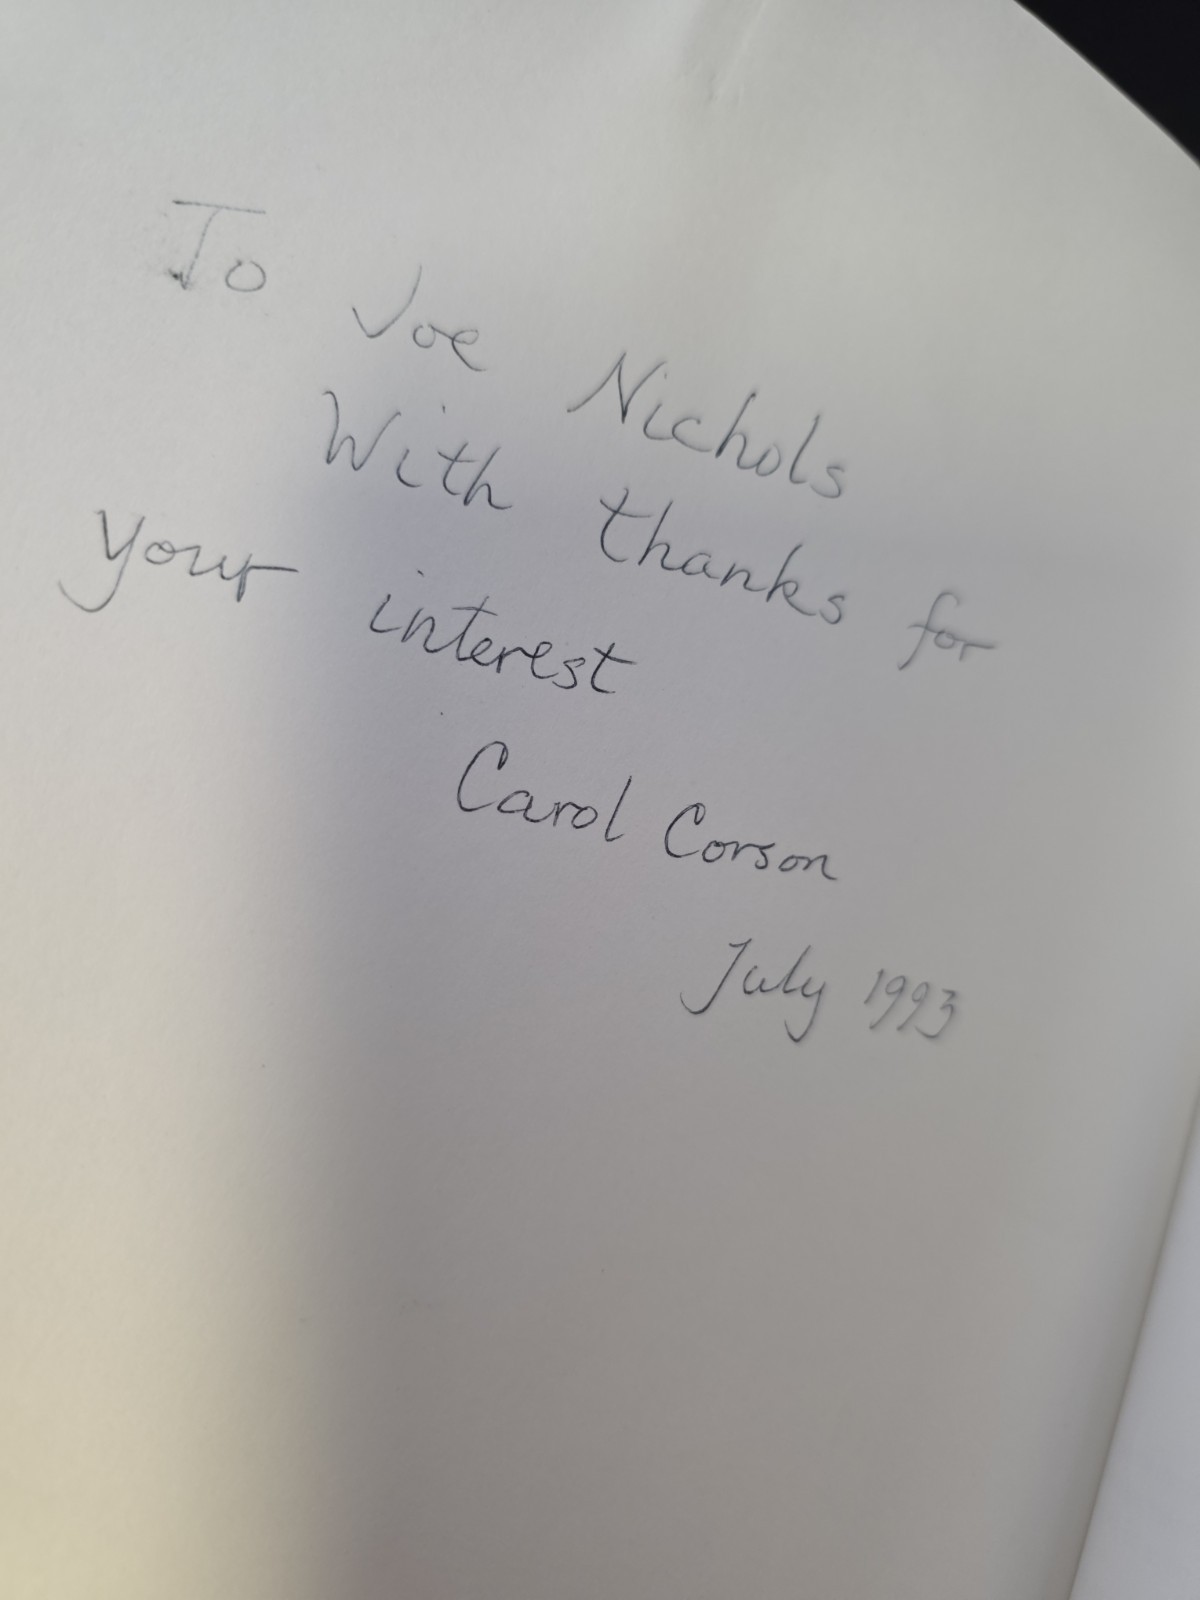 To Joe Nichols
With thanks for
your interest
Carol Corson
July 1993